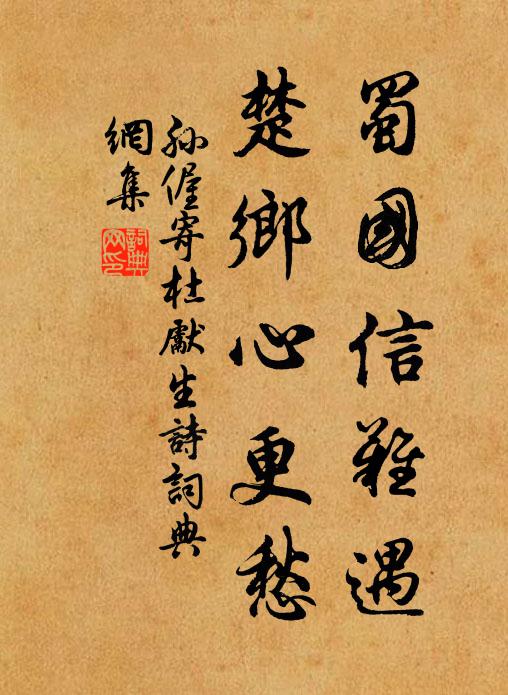 蜀國信難遇
楚鄉心更愁
孫偓寄杜獻生詩詞典
網集
詞典
網印